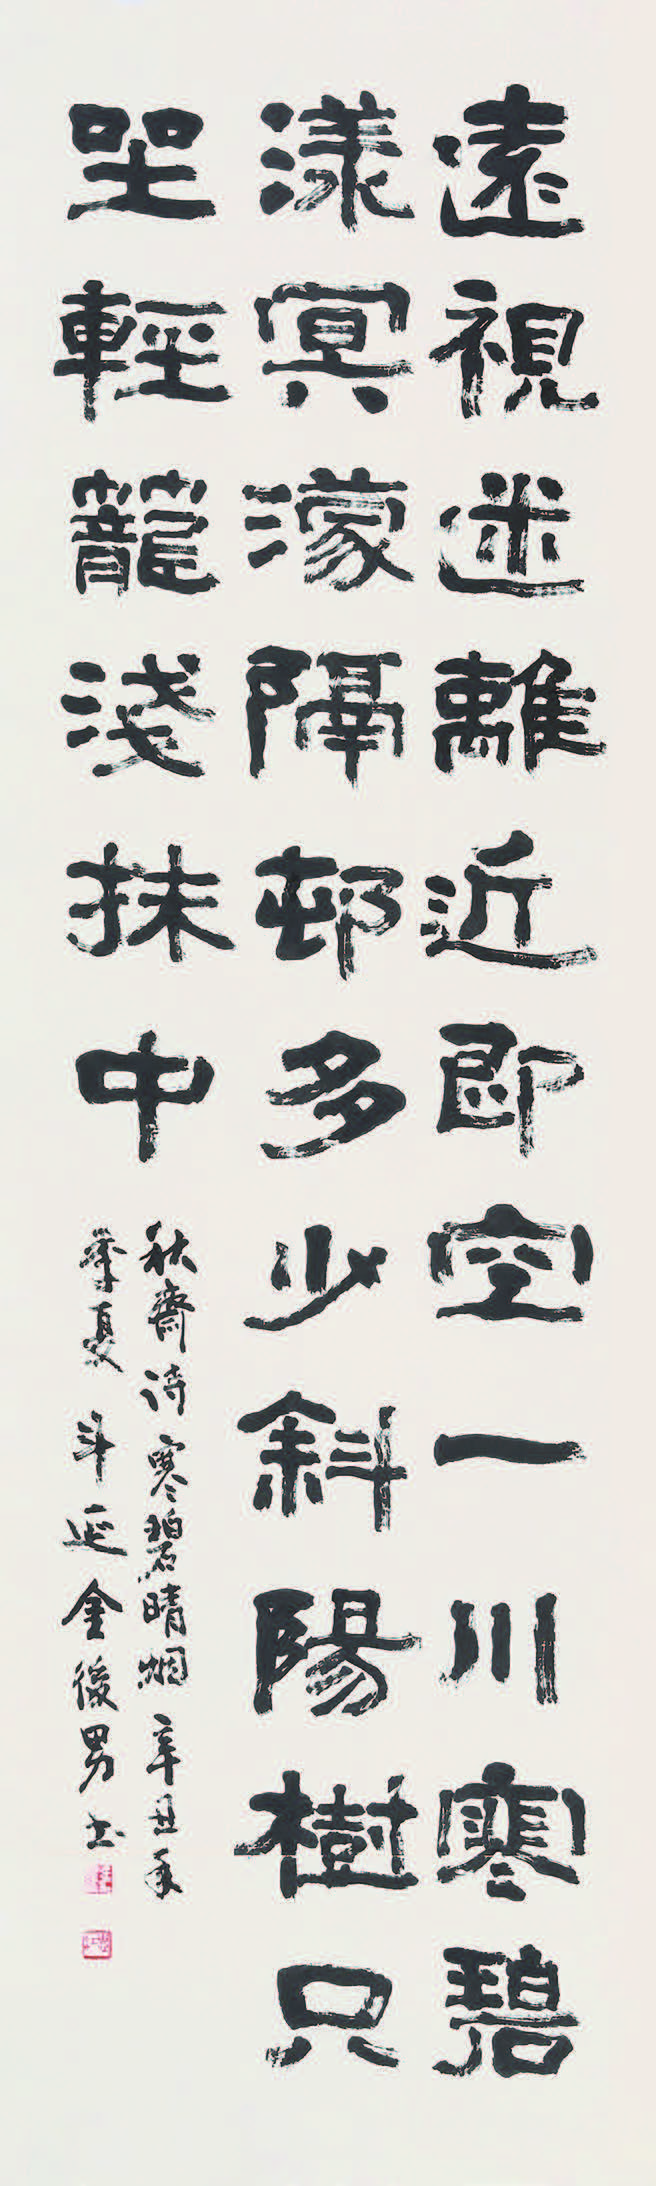 遠視迷離近即空一川寒碧
漾冥濛隔邨多少斜陽樹只
㘴輕籠淺抹中
秋齋詩 寒碧晴烟 辛丑年
季夏 斗延 金後男 書